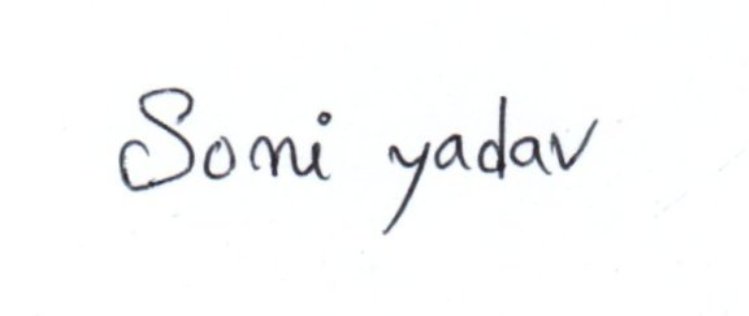 Soni yadav